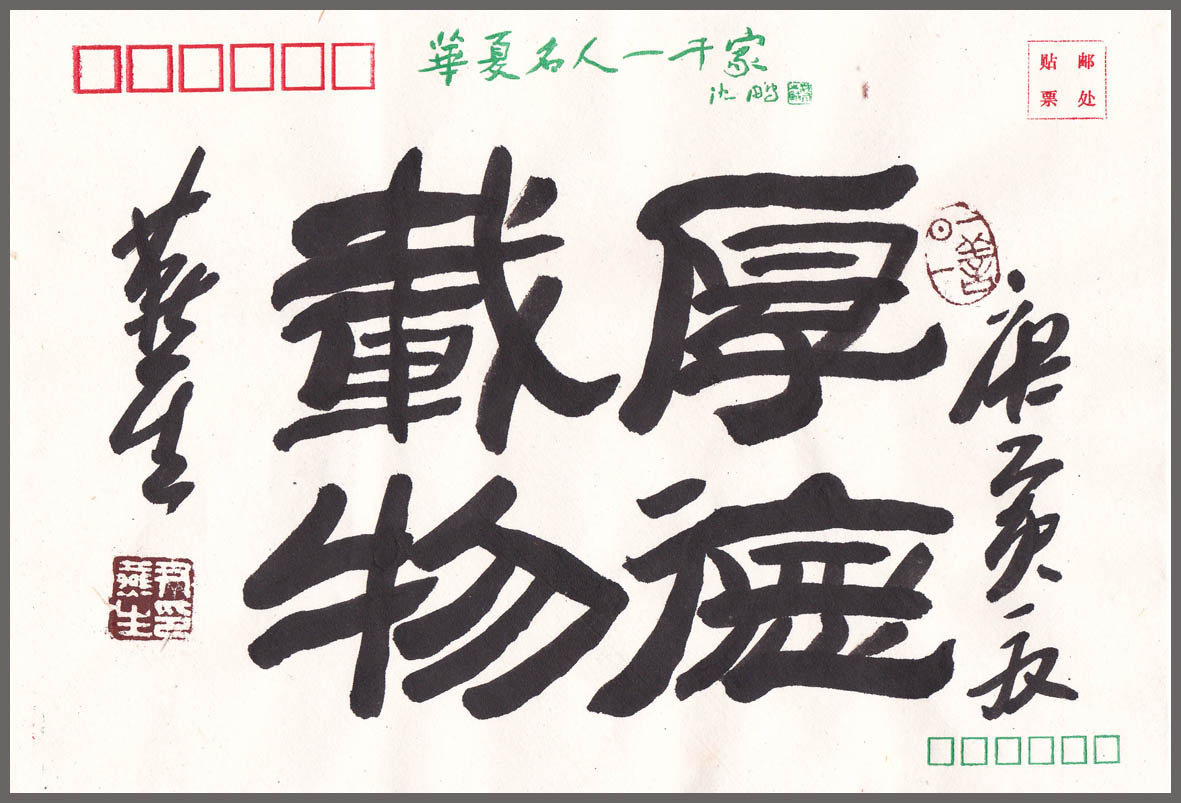 華夏名人一千家
沈鹏
贴邮
票处
庚寅
厚德
載物
燕生
燕生